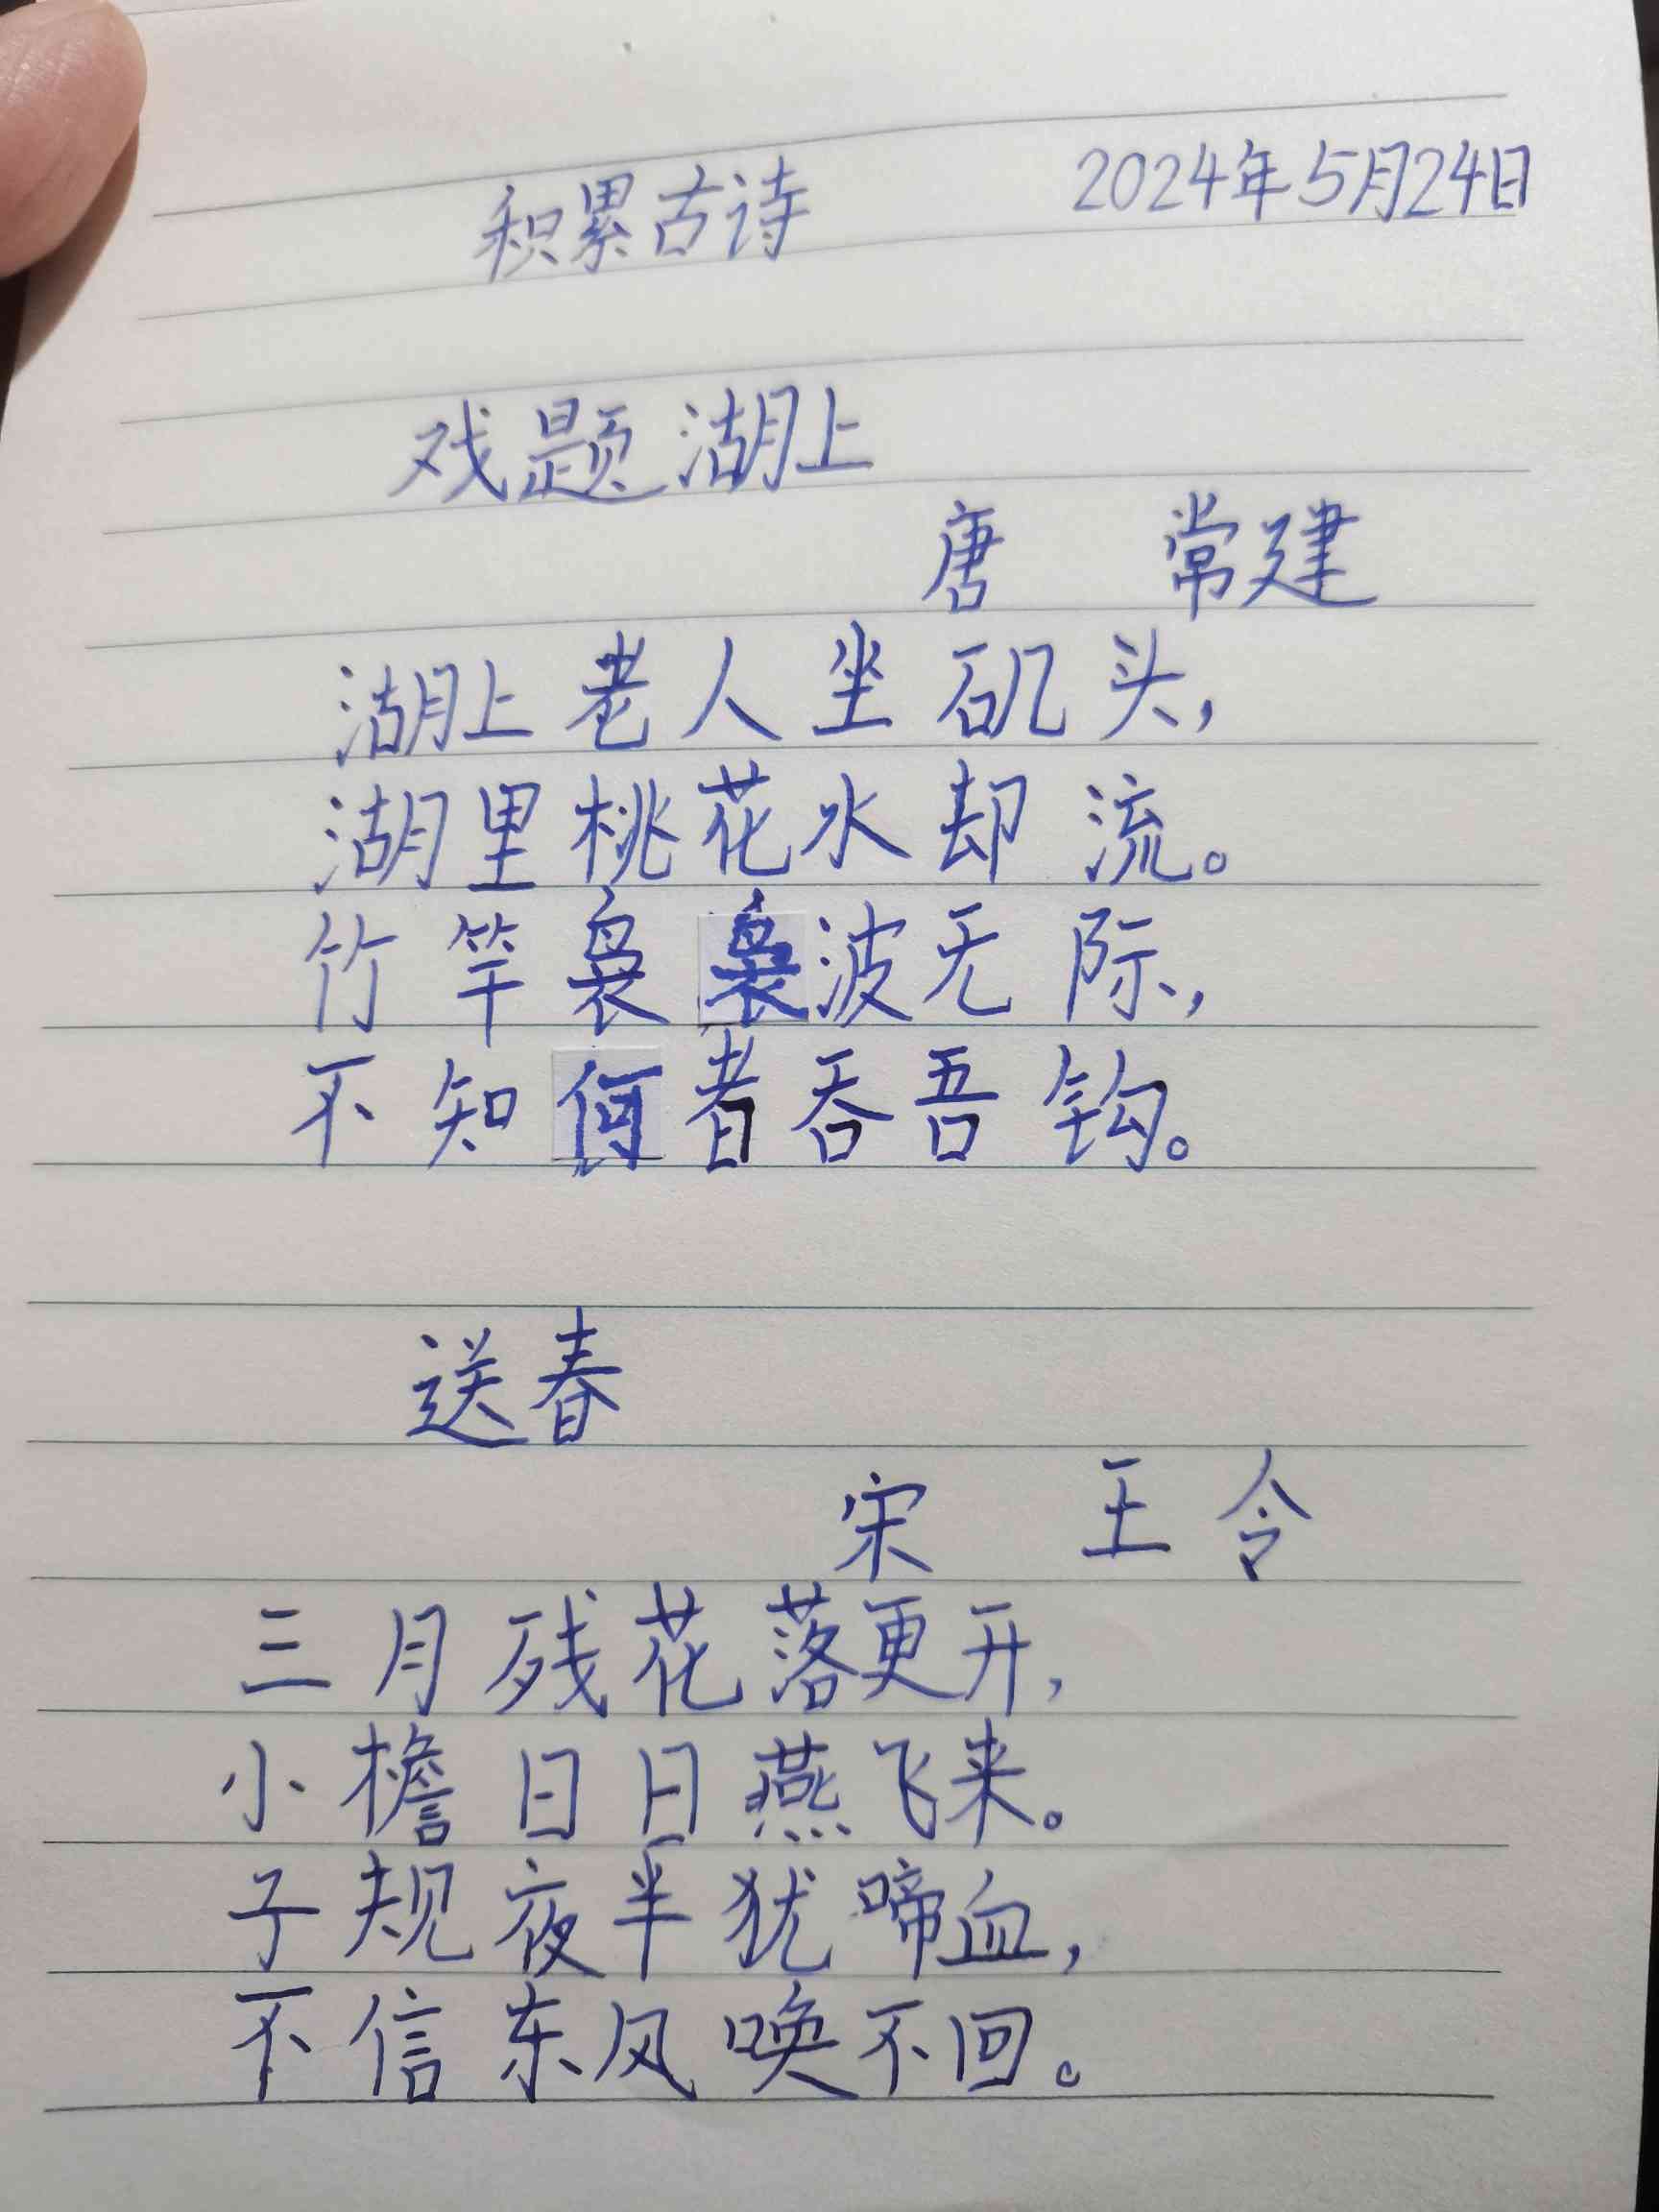 积累古诗 2024年5月24日
戏题湖上
唐 常建
湖上老人坐矶头，
湖里桃花水却流。
竹竿袅袅波无际，
不知何者吞吾钩。
送春
宋 王令
三月残花落更开，
小檐日日燕飞来。
子规夜半犹啼血，
不信东风唤不回。